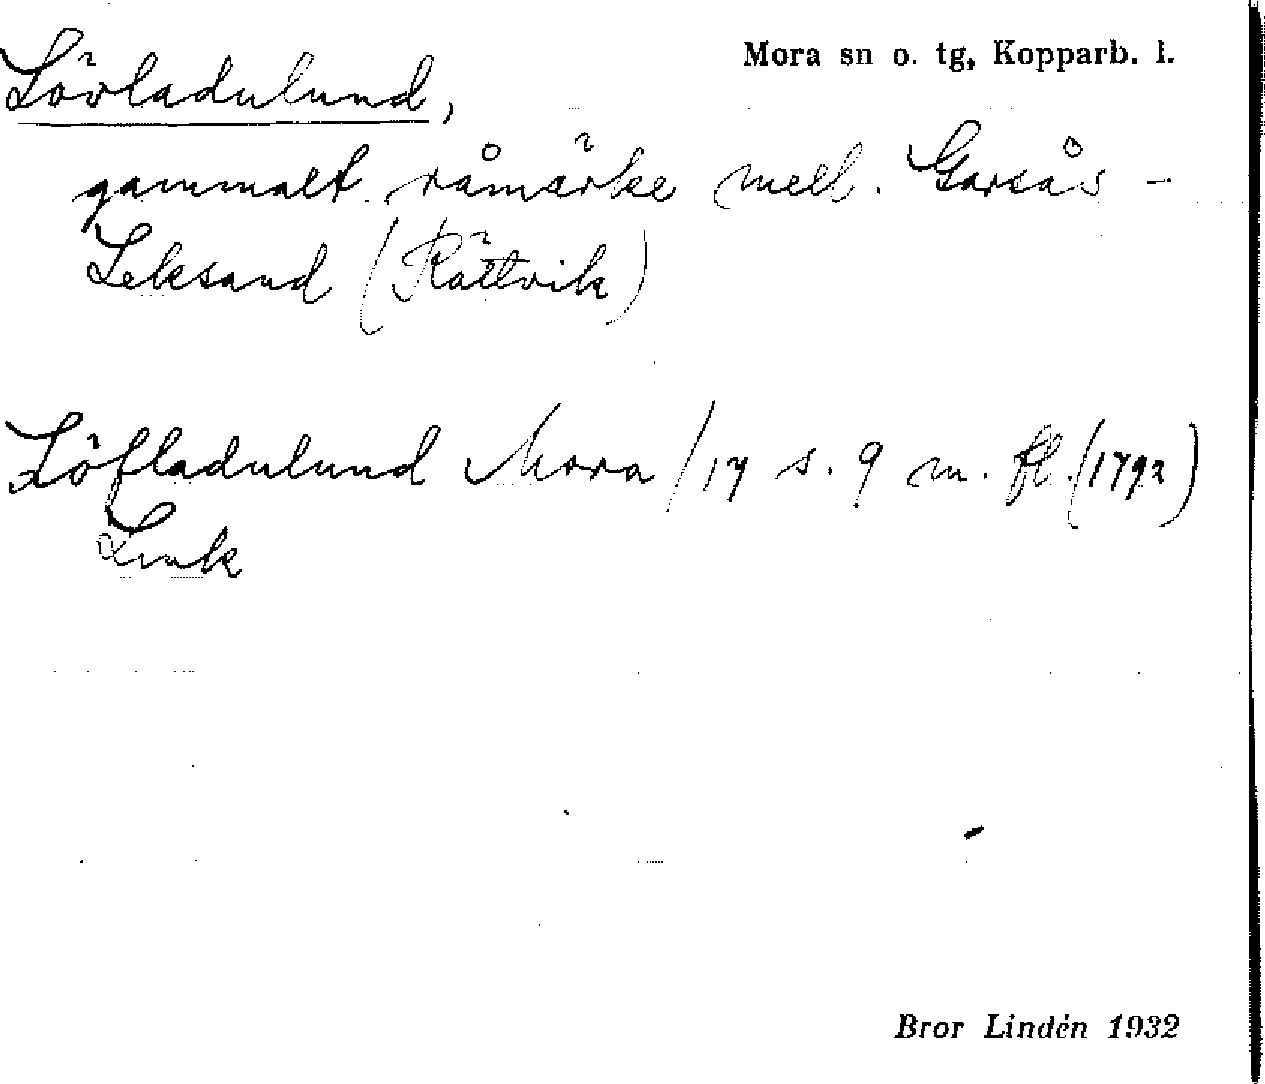 Mora sn o. tg, Kopparb. l.
Lövladulund,
gammalt råmärke mell. Garsås -
Leksand (Rättvik)
Löfladulund Mora / 17 s. 9 m. fl. (1792)
Lmk
Bror Lindén 1932